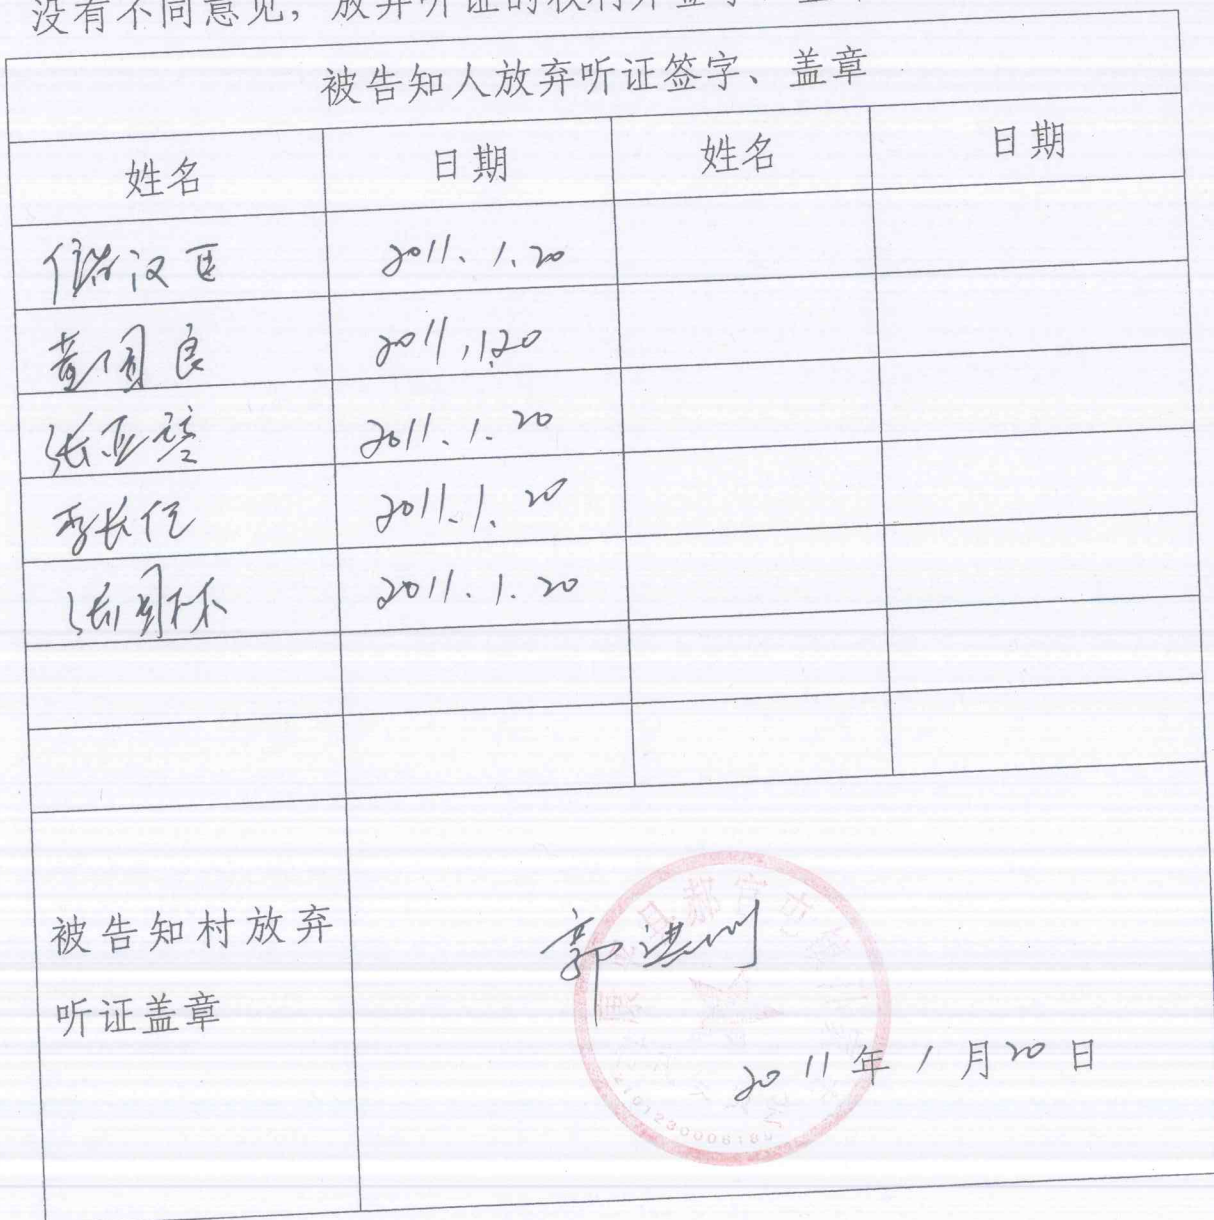 没有不同意见，放弃听证的权利并签字、盖
被告知人放弃听证签字、盖章
姓名 日期 姓名 日期
汉臣 2011.1.20
董国良 2011.1.20
张亚 2011.1.20
李长信 2011.1.20
张国林 2011.1.20
被告知村放弃
听证盖章
郭洪川
2011年1月20日